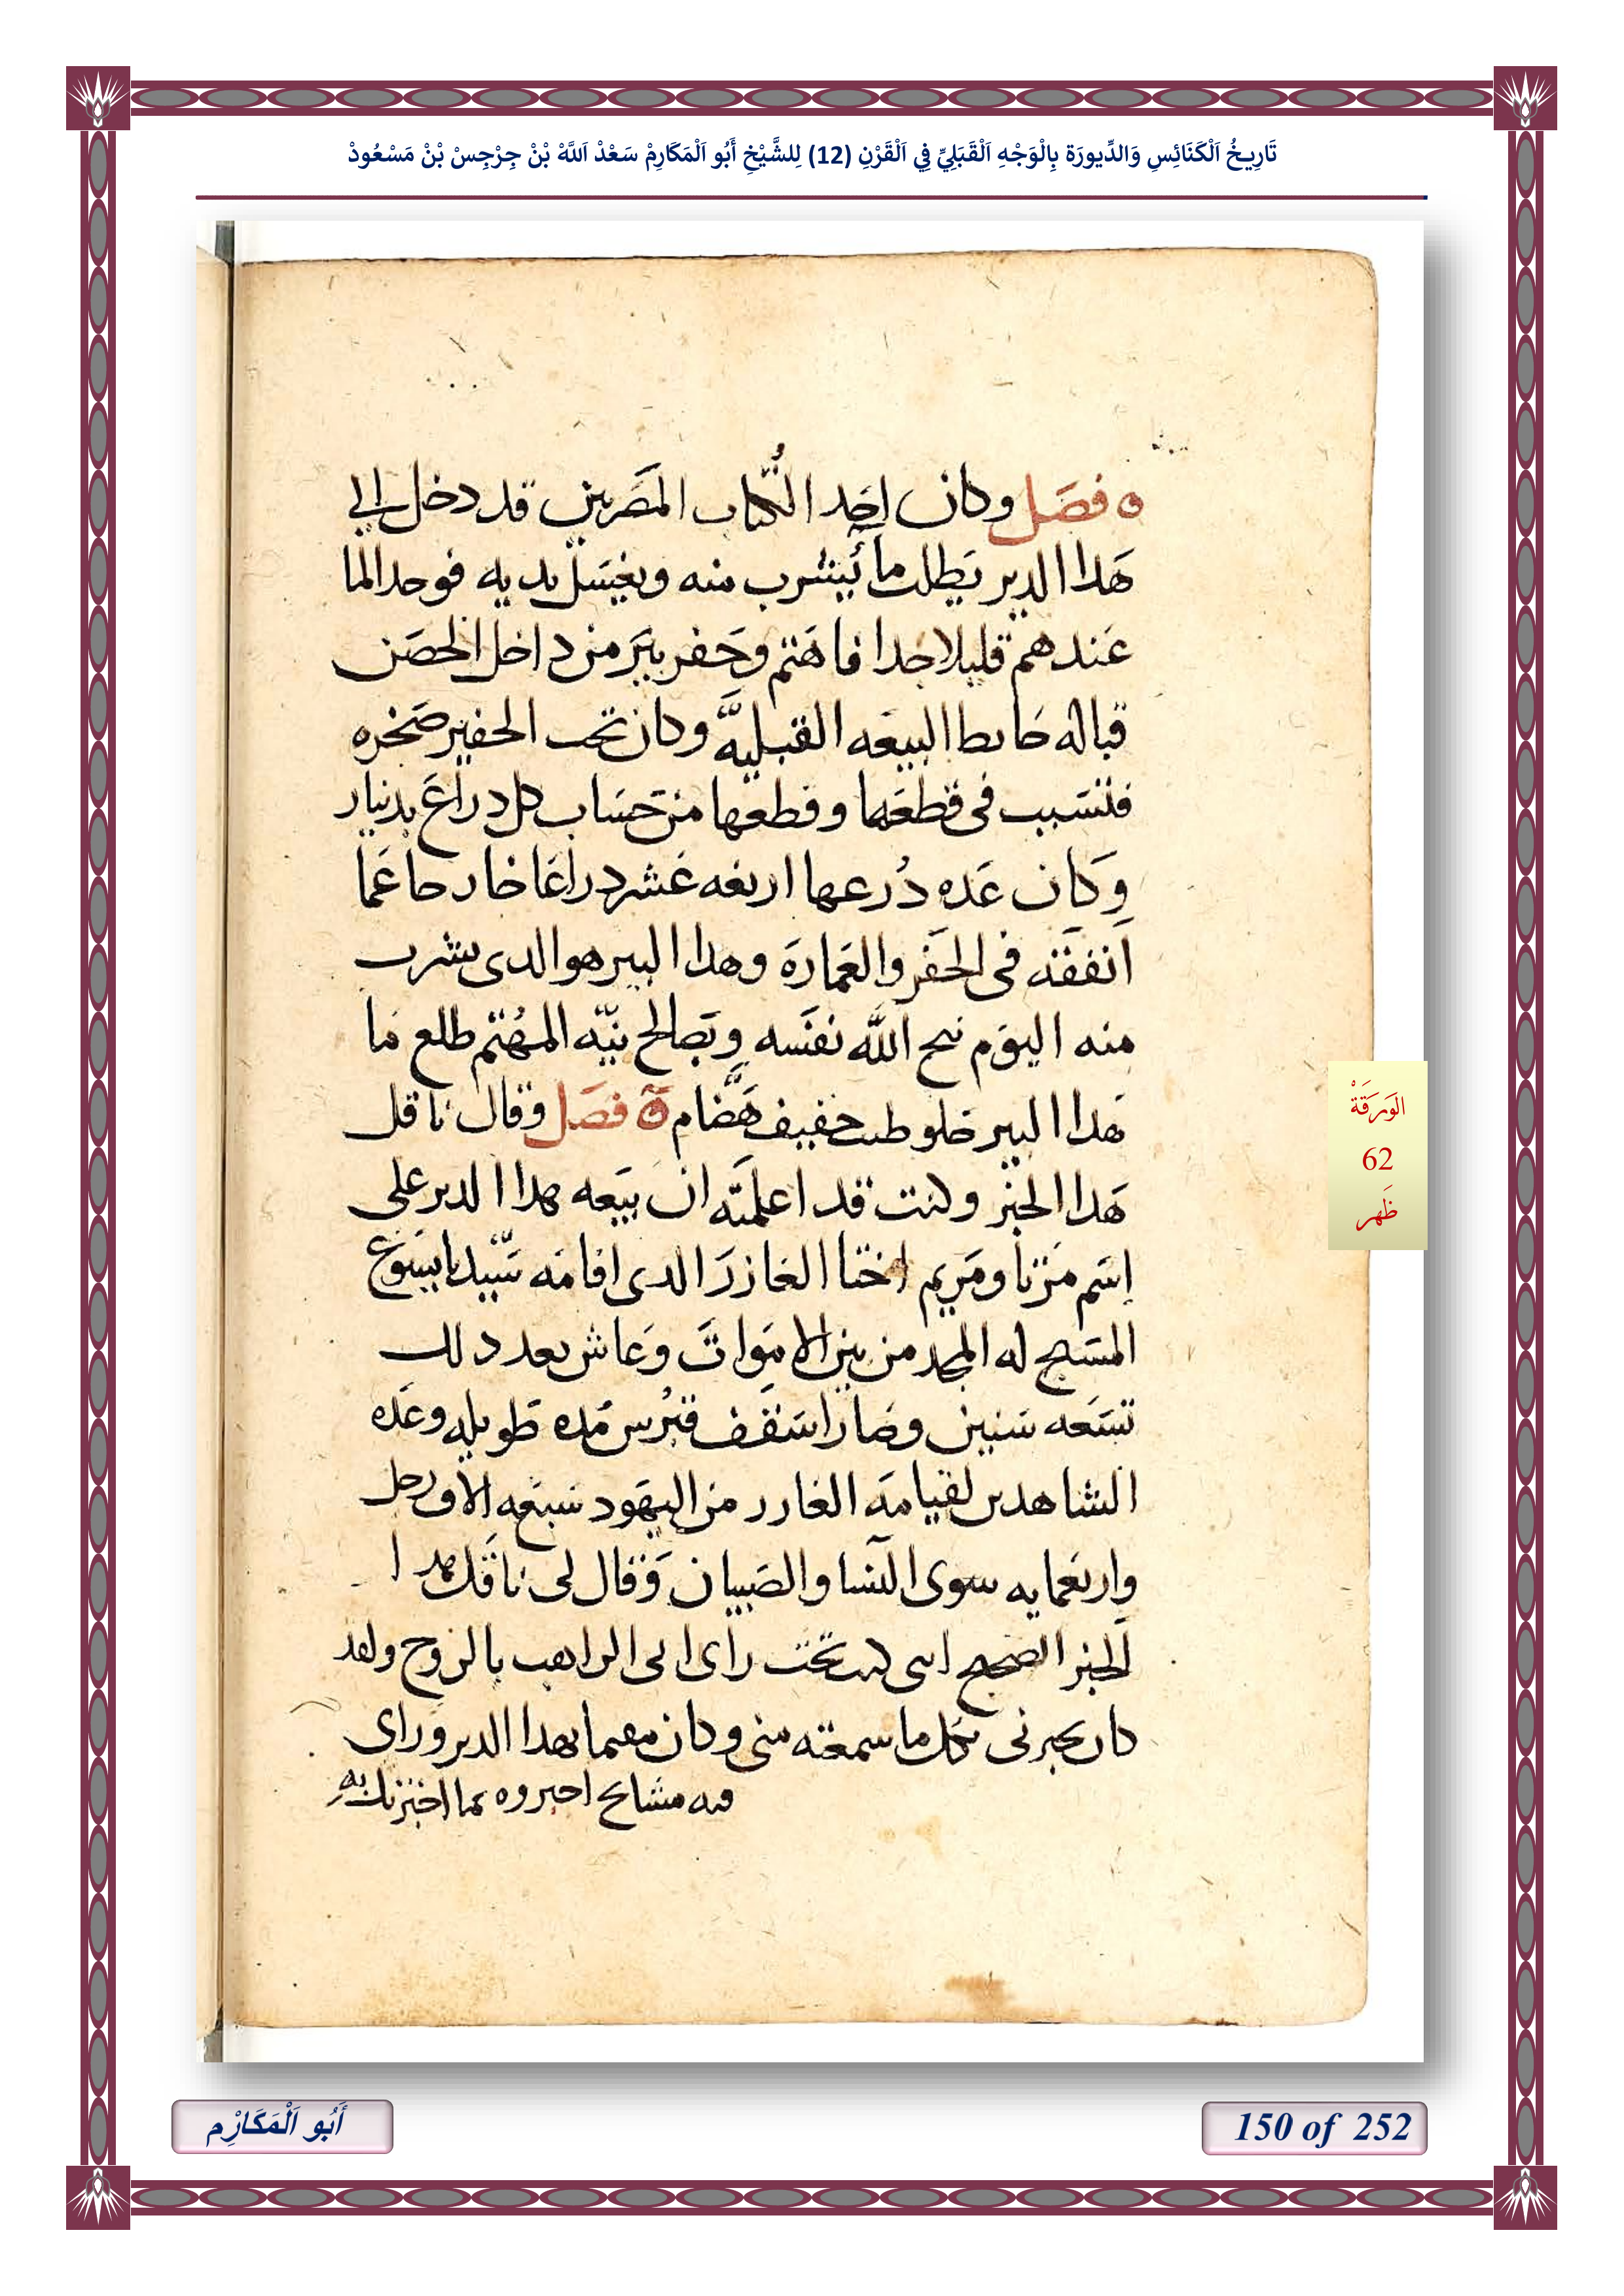 تَارِيخُ اَلْكَنَائِسِ وَالدِّيورَة بِالْوَجْهِ اَلْقَبَلِيِّ فِي اَلْقَرْنِ (12) لِلشَّيْخِ أَبُو اَلْمَكَارِمْ سَعْدْ اَللَّهْ بْنْ جِرْجِسْ بْنْ مَسْعُودْ
ه فصل وكان احد الكتاب المصريين قد دخل الي
هدا الدير يطلب ما يشرب منه ويغسل يديه فوجد الما
عندهم قليلا جدا فاهتم وحفر بير من داخل الحصن
قبالة حايط البيعه القبليه وكان تحت الحفير صخره
فتسبب في قطعها وقطعها من حساب كل دراع بدينار
وكان عده درعها اربعه عشر دراعا خارجا عما
انفقه في الحفر والعماره وهدا البير هو الدي يشرب
منه اليوم نيح الله نفسه وبصالح نيته المهتم طلع ما
هدا البير حلو طيب خفيف هضام ه فصل وقال ناقل
هدا الخبر وكنت قد اعلمته ان بيعه هدا الدير علي
اسم مرتا ومريم اختا العازر الدي اقامه سيدنا يسوع
المسيح له المجد من بين الاموات وعاش بعد دلك
تسعه سنين وصار اسقف قبرس مده طويله وعده
الشاهدين لقيامه العازر من اليهود سبعه الاف رجل
واربعمايه سوي النسا والصبيان وقال لي ناقل هدا
الخبر الصحيح انني كنت تحت راي ابي الراهب بالروح ولقد
كان يخبرني بكل ما سمعته مني وكان مقيما بهدا الدير وراي
فيه مشايخ اخبروه بما اخبرتك به
الوَرَقَةْ
62
ظَهر
أَبُو اَلْمَكَارِْم
150 of 252